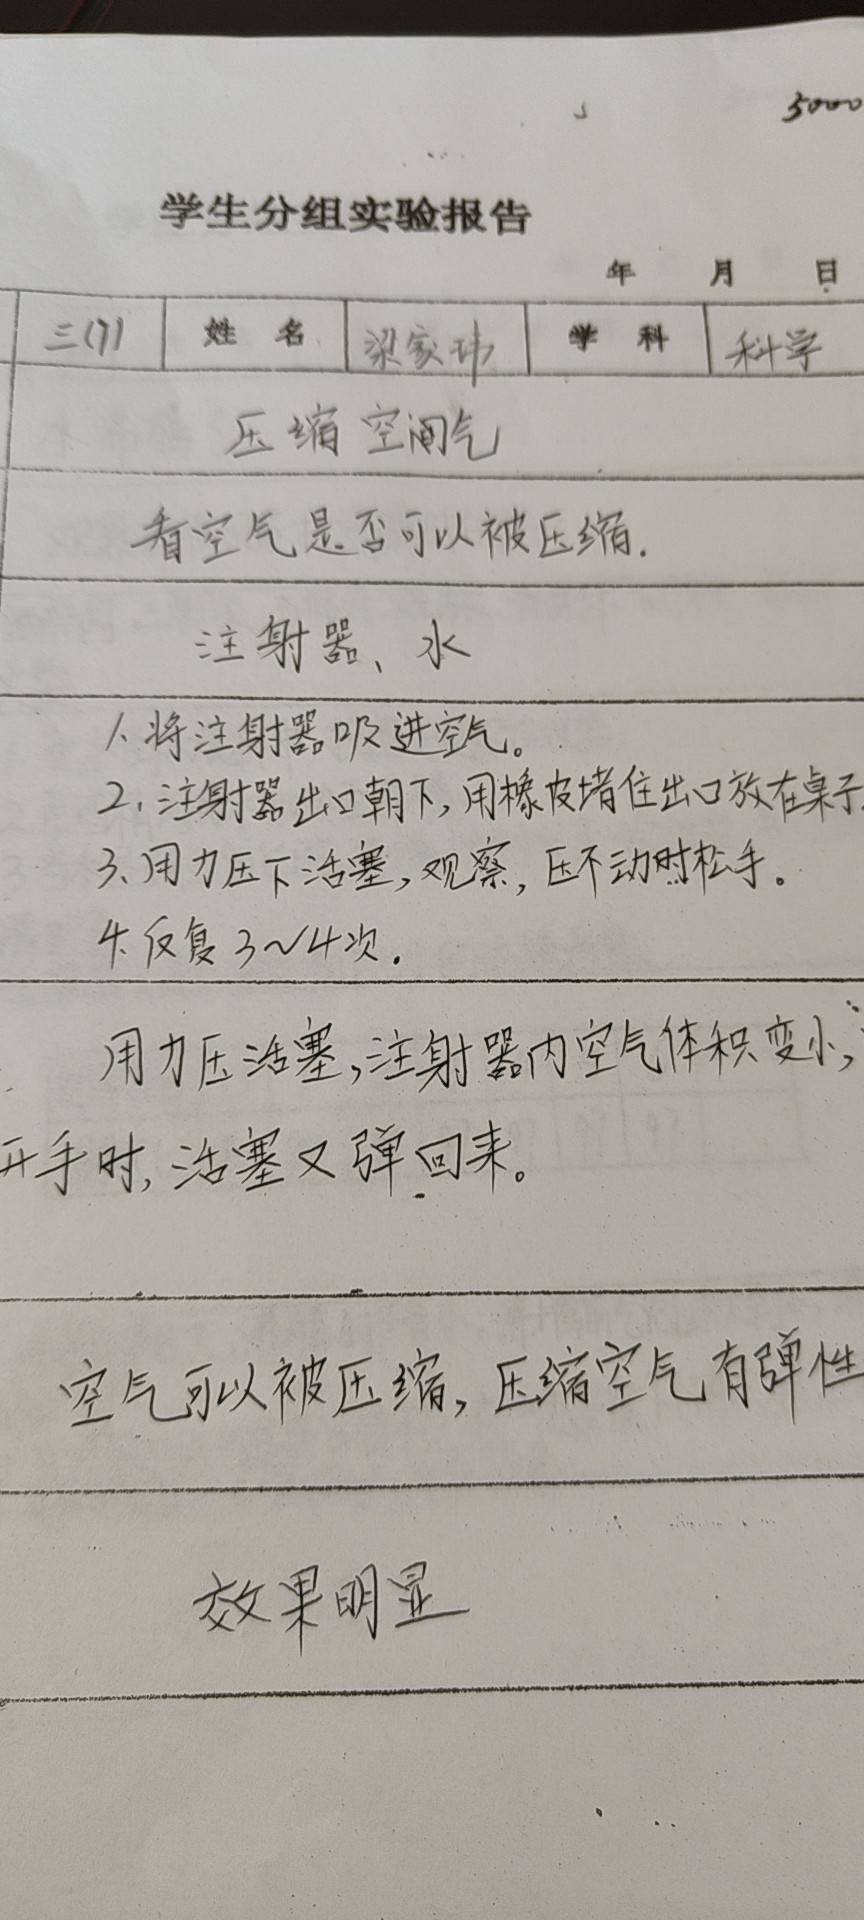 5000
学生分组实验报告
年 月 日
三(7) 姓名 梁家玮 学科 科学
压缩空气
看空气是否可以被压缩.
注射器、水
1、将注射器吸进空气。
2、注射器出口朝下,用橡皮堵住出口放在桌子
3、用力压下活塞,观察,压不动时松手。
4、反复3~4次.
用力压活塞,注射器内空气体积变小,
开手时,活塞又弹回来。
空气可以被压缩,压缩空气有弹性
效果明显